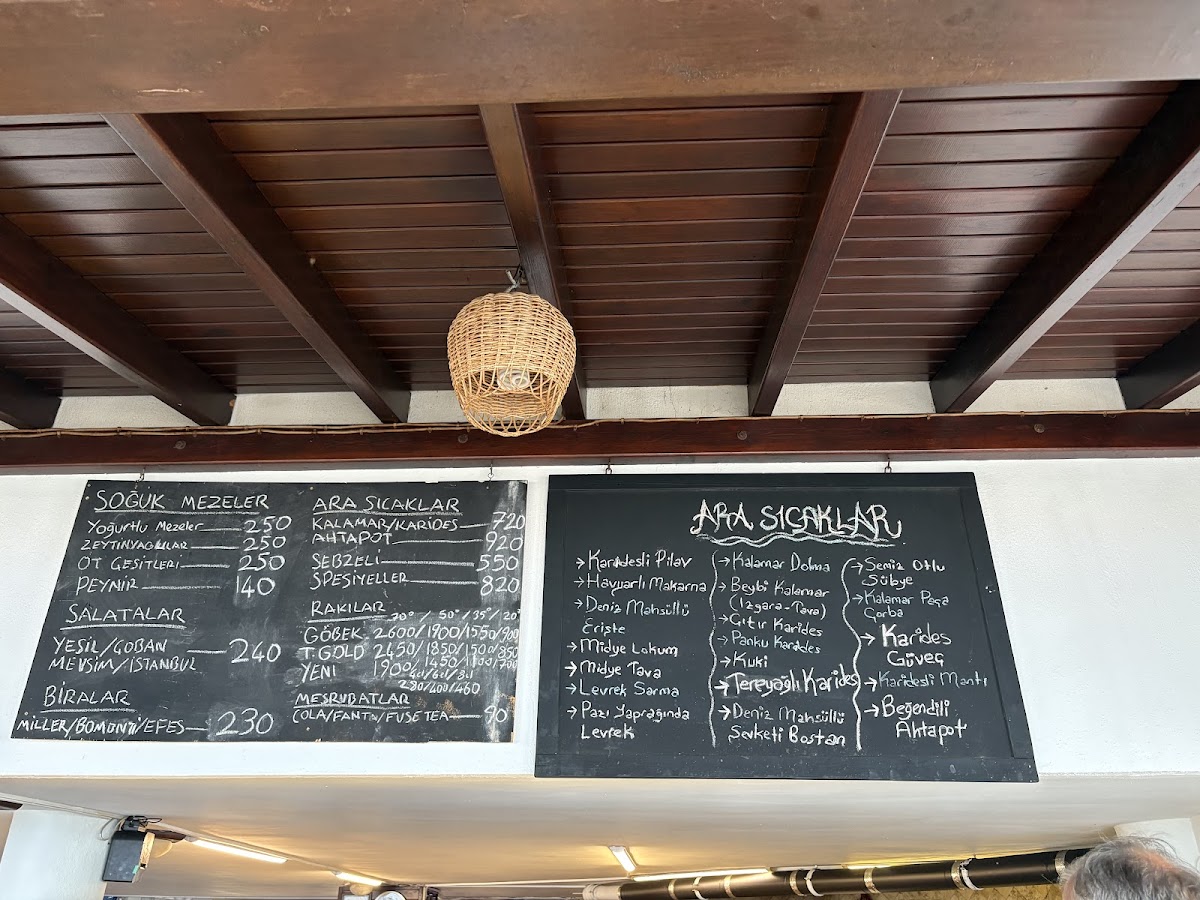 SOĞUK MEZELER
Yoğurtlu Mezeler 250
ZEYTİNYAĞLILAR 250
OT ÇEŞİTLERİ 250
PEYNİR 140
SALATALAR
YEŞİL/ÇOBAN
MEVSİM/İSTANBUL 240
BİRALAR
MİLLER/BOMONTİ/EFES 230
ARA SICAKLAR
KALAMAR/KARİDES 720
AHTAPOT 920
SEBZELİ 550
SPESİYELLER 820
RAKILAR 70° / 50° / 35° / 20°
GÖBEK 2600/1900/1550/900
T.GOLD 2450/1850/1500/850
YENİ 1900/1450/1100/700
MEŞRUBATLAR
COLA/FANTA/FUSE TEA 90
ARA SICAKLAR
→ Karidesli Pilav
→ Havyarlı Makarna
→ Deniz Mahsüllü
Erişte
→ Midye Lokum
→ Midye Tava
→ Levrek Sarma
→ Pazı Yaprağında
Levrek
→ Kalamar Dolma
→ Beybi Kalamar
(Izgara-Tava)
→ Çıtır Karides
→ Panku Karides
→ Kuki
→ Tereyağlı Karides
→ Deniz Mahsüllü
Şevketi Bostan
→ Semiz Otlu
Sübye
→ Kalamar Paça
Çorba
→ Karides
Güveç
→ Karidesli Mantı
→ Beğendili
Ahtapot